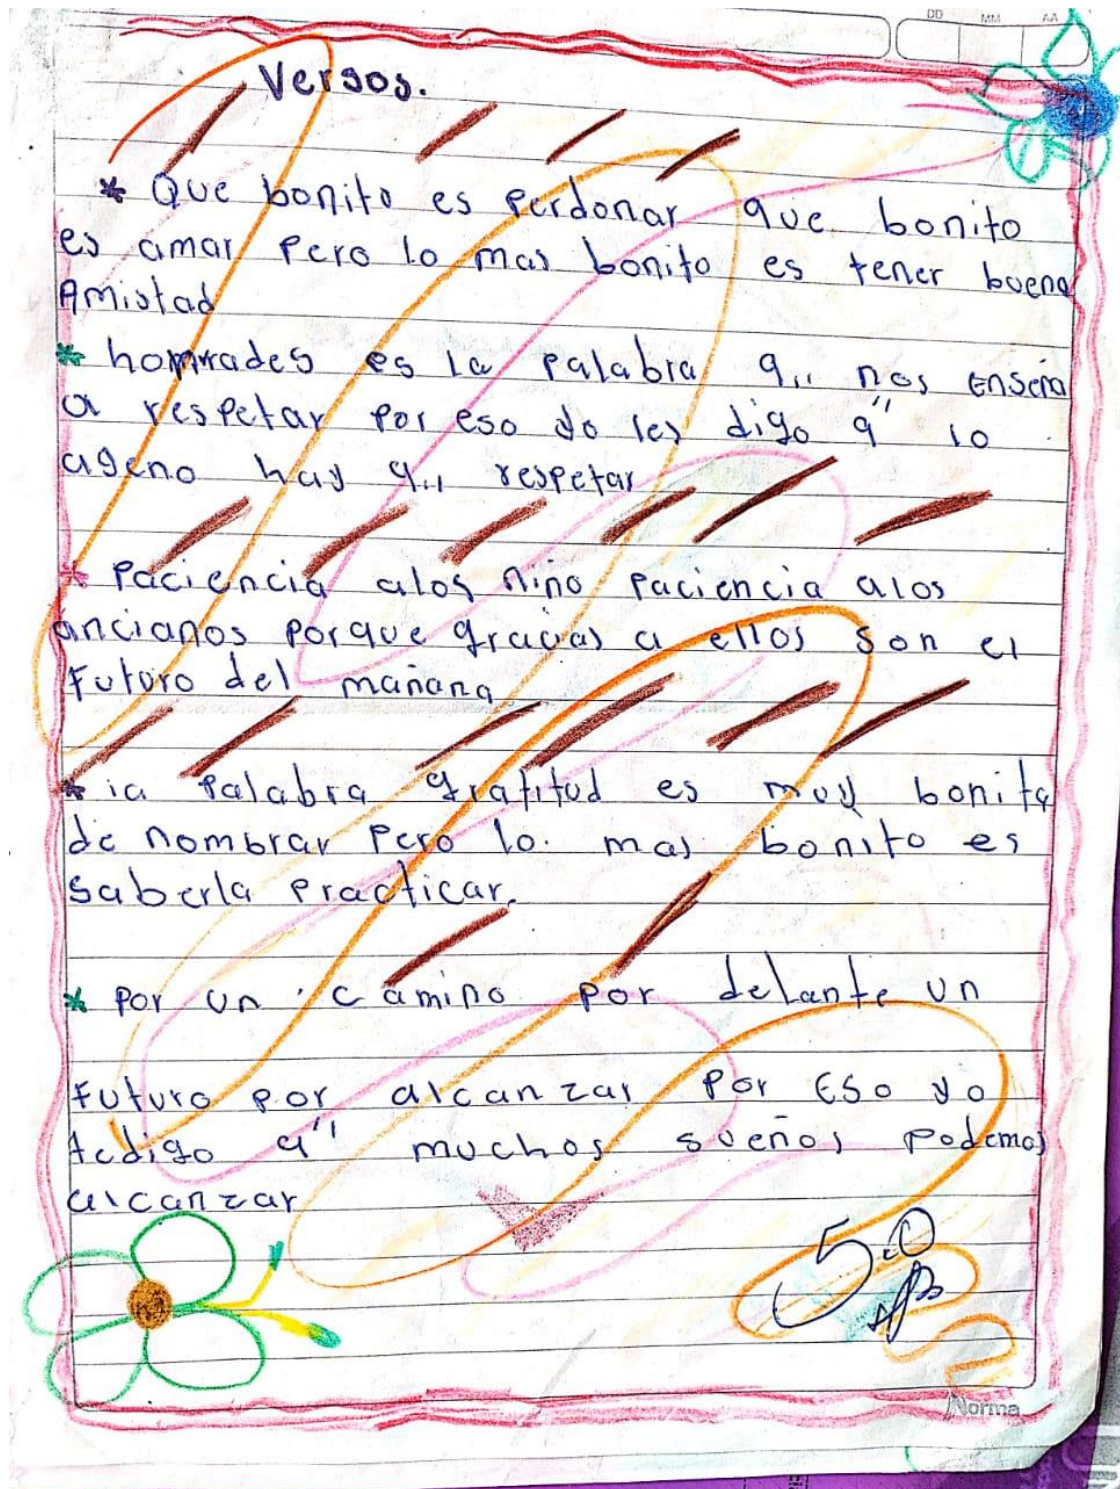 DD MM AA
Versos.
* Que bonito es perdonar que bonito
es amar pero lo mas bonito es tener buena
Amistad
* homrades es la palabra q" nos enseña
a respetar por eso yo les digo q" lo
ageno hay q" respetar
* Paciencia alos niño paciencia alos
ancianos porque gracias a ellos son el
futuro del mañana
* la palabra gratitud es muy bonita
de nombrar pero lo mas bonito es
saberla practicar.
* por un camino por delante un
futuro por alcanzar por eso yo
tedigo q" muchos sueños podemos
alcanzar
5.0
Norma